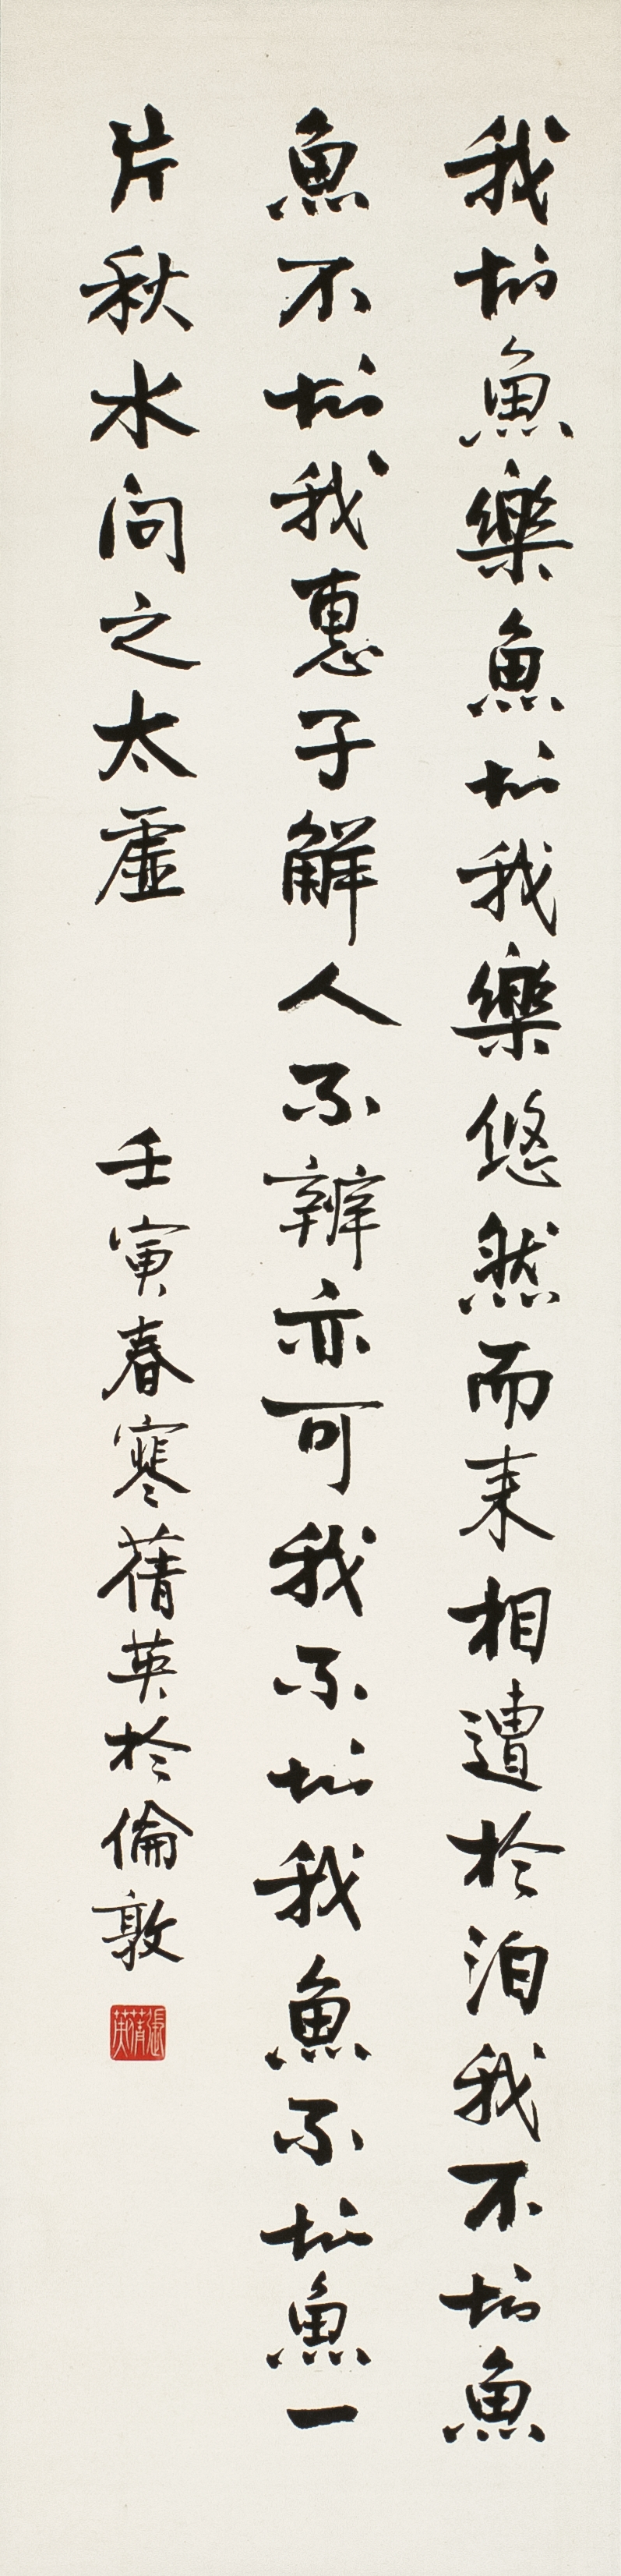 我知魚樂魚知我樂悠然而来相遭於泊我不知魚
魚不知我惠子解人不辨亦可我不知我魚不知魚一
片秋水問之太虛
壬寅春寒蒨英於倫敦
張蒨英